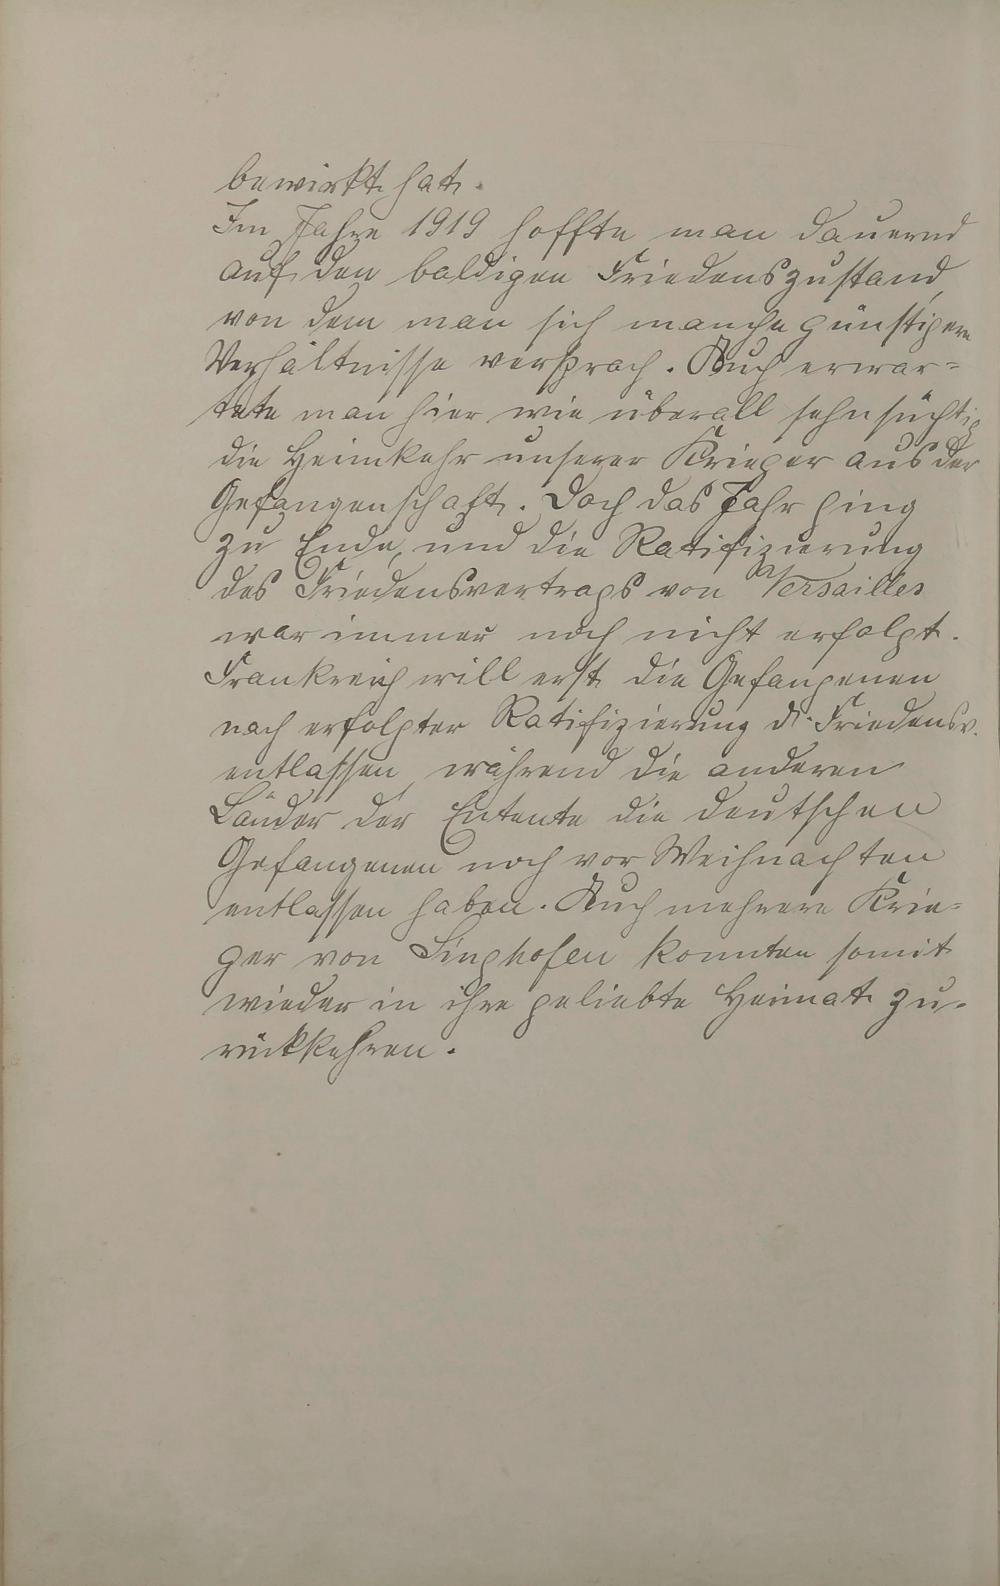 bewirkt hat.
Im Jahre 1919 hoffte man dauernd
auf den baldigen Friedenszustand,
von dem man sich manche günstigere
Verhältnisse versprach. Auch erwar-
tete man hier wie überall sehnsüchtig
die Heimkehr unserer Krieger aus der
Gefangenschaft. Doch das Jahr ging
zu Ende, und die Ratifizierung
des Friedensvertrags von Versailles
war immer noch nicht erfolgt.
Frankreich will erst die Gefangenen
nach erfolgter Ratifizierung d. Friedensv.
entlassen, während die anderen
Länder der Entente die deutschen
Gefangenen noch vor Weihnachten
entlassen haben. Auch mehrere Krie-
ger von Singhofen konnten somit
wieder in ihre geliebte Heimat zu-
rückkehren.